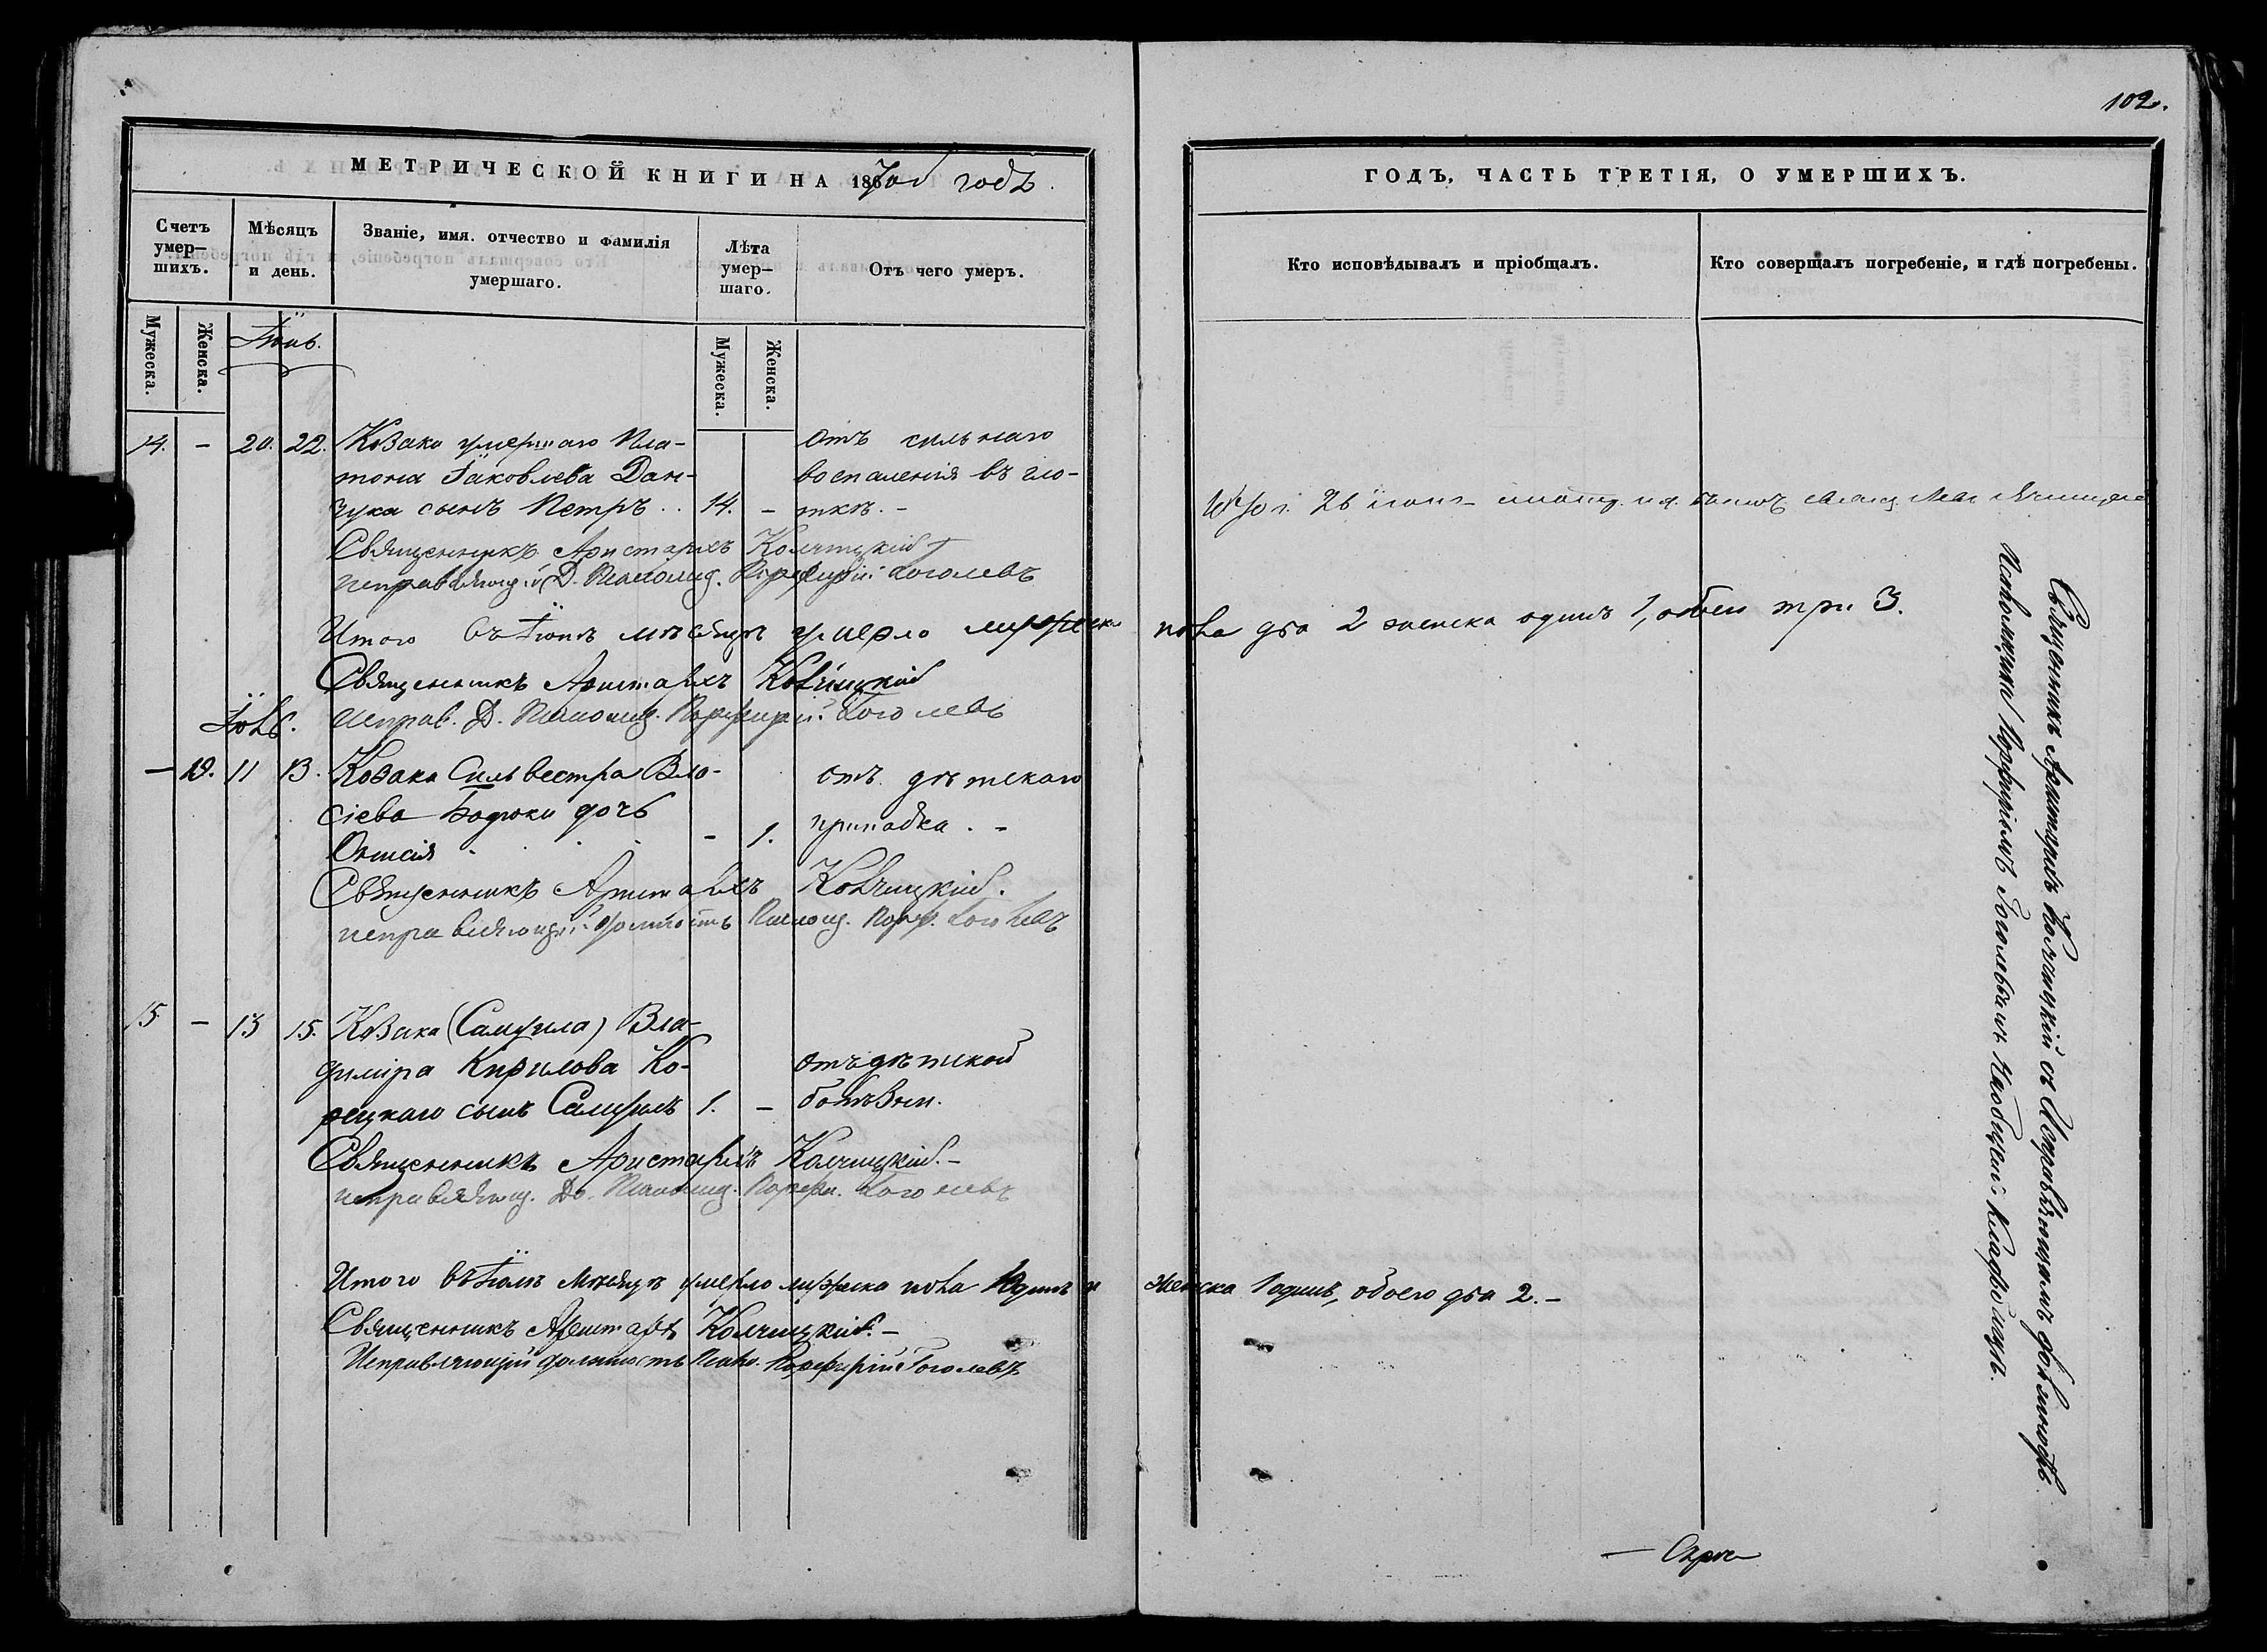 102.
МЕТРИЧЕСКОЙ КНИГИ НА 1867ой годъ.
Счетъ умер—шихъ.
Мѣсяцъ и день.
Званіе, имя. отчество и фамилія умершаго.
Лѣта умер—шаго.
Отъ чего умеръ.
Мужеска.
Женска.
Мужеска.
Женска.
Іюнь.
14. – 20. 22. Козака умершаго Пла- отъ сильнаго
тона Іаковлева Дан- воспаленія въ гло-
чука сынъ Петръ . . 14. – ткѣ. –
Священникъ Аристархъ Колчицкій
исправляющій Д. Псаломщ. Порфирій Гоголевъ
Итого въ Іюнѣ мѣсяцѣ умерло мужеска
Священникъ Аристархъ Колчицкій
Исправ. Д. Псаломщ. Порфирій Гоголевъ
Іюль.
– 19. 11 13. Козака Сильвестра Вла- отъ дѣтскаго
сіева дочь припадка . –
– 1.
Священникъ Аристархъ Колчицкій.
исправляющій должность Псаломщ. Порф. Гоголевъ
15 – 13 15. Козака (Самуила) Вла-
диміра Кирилова Ко- отъ дѣтской
рецкаго сынъ Самуилъ 1. – болѣзни.
Священникъ Аристархъ Колчицкій. –
исправляющ. До. Псаломщ. Порфи. Гоголевъ
Итого въ Іюлѣ мѣсяцѣ умерло мужеска пола 1 одинъ и
Священникъ Аристархъ Колчицкій. –
Исправляющій должность Псало. Порфирій Гоголевъ
ГОДЪ, ЧАСТЬ ТРЕТІЯ, О УМЕРШИХЪ.
Кто исповѣдывалъ и пріобщалъ.
Кто совершалъ погребеніе, и гдѣ погребены.
пола два 2 женска одинъ 1, обоего три 3.
женска 1 одинъ, обоего два 2. –
Священникъ Аристархъ Колчицкій съ Исправляющимъ должность
Псаломщика Порфиріемъ Гоголевымъ на общемъ кладбищѣ.